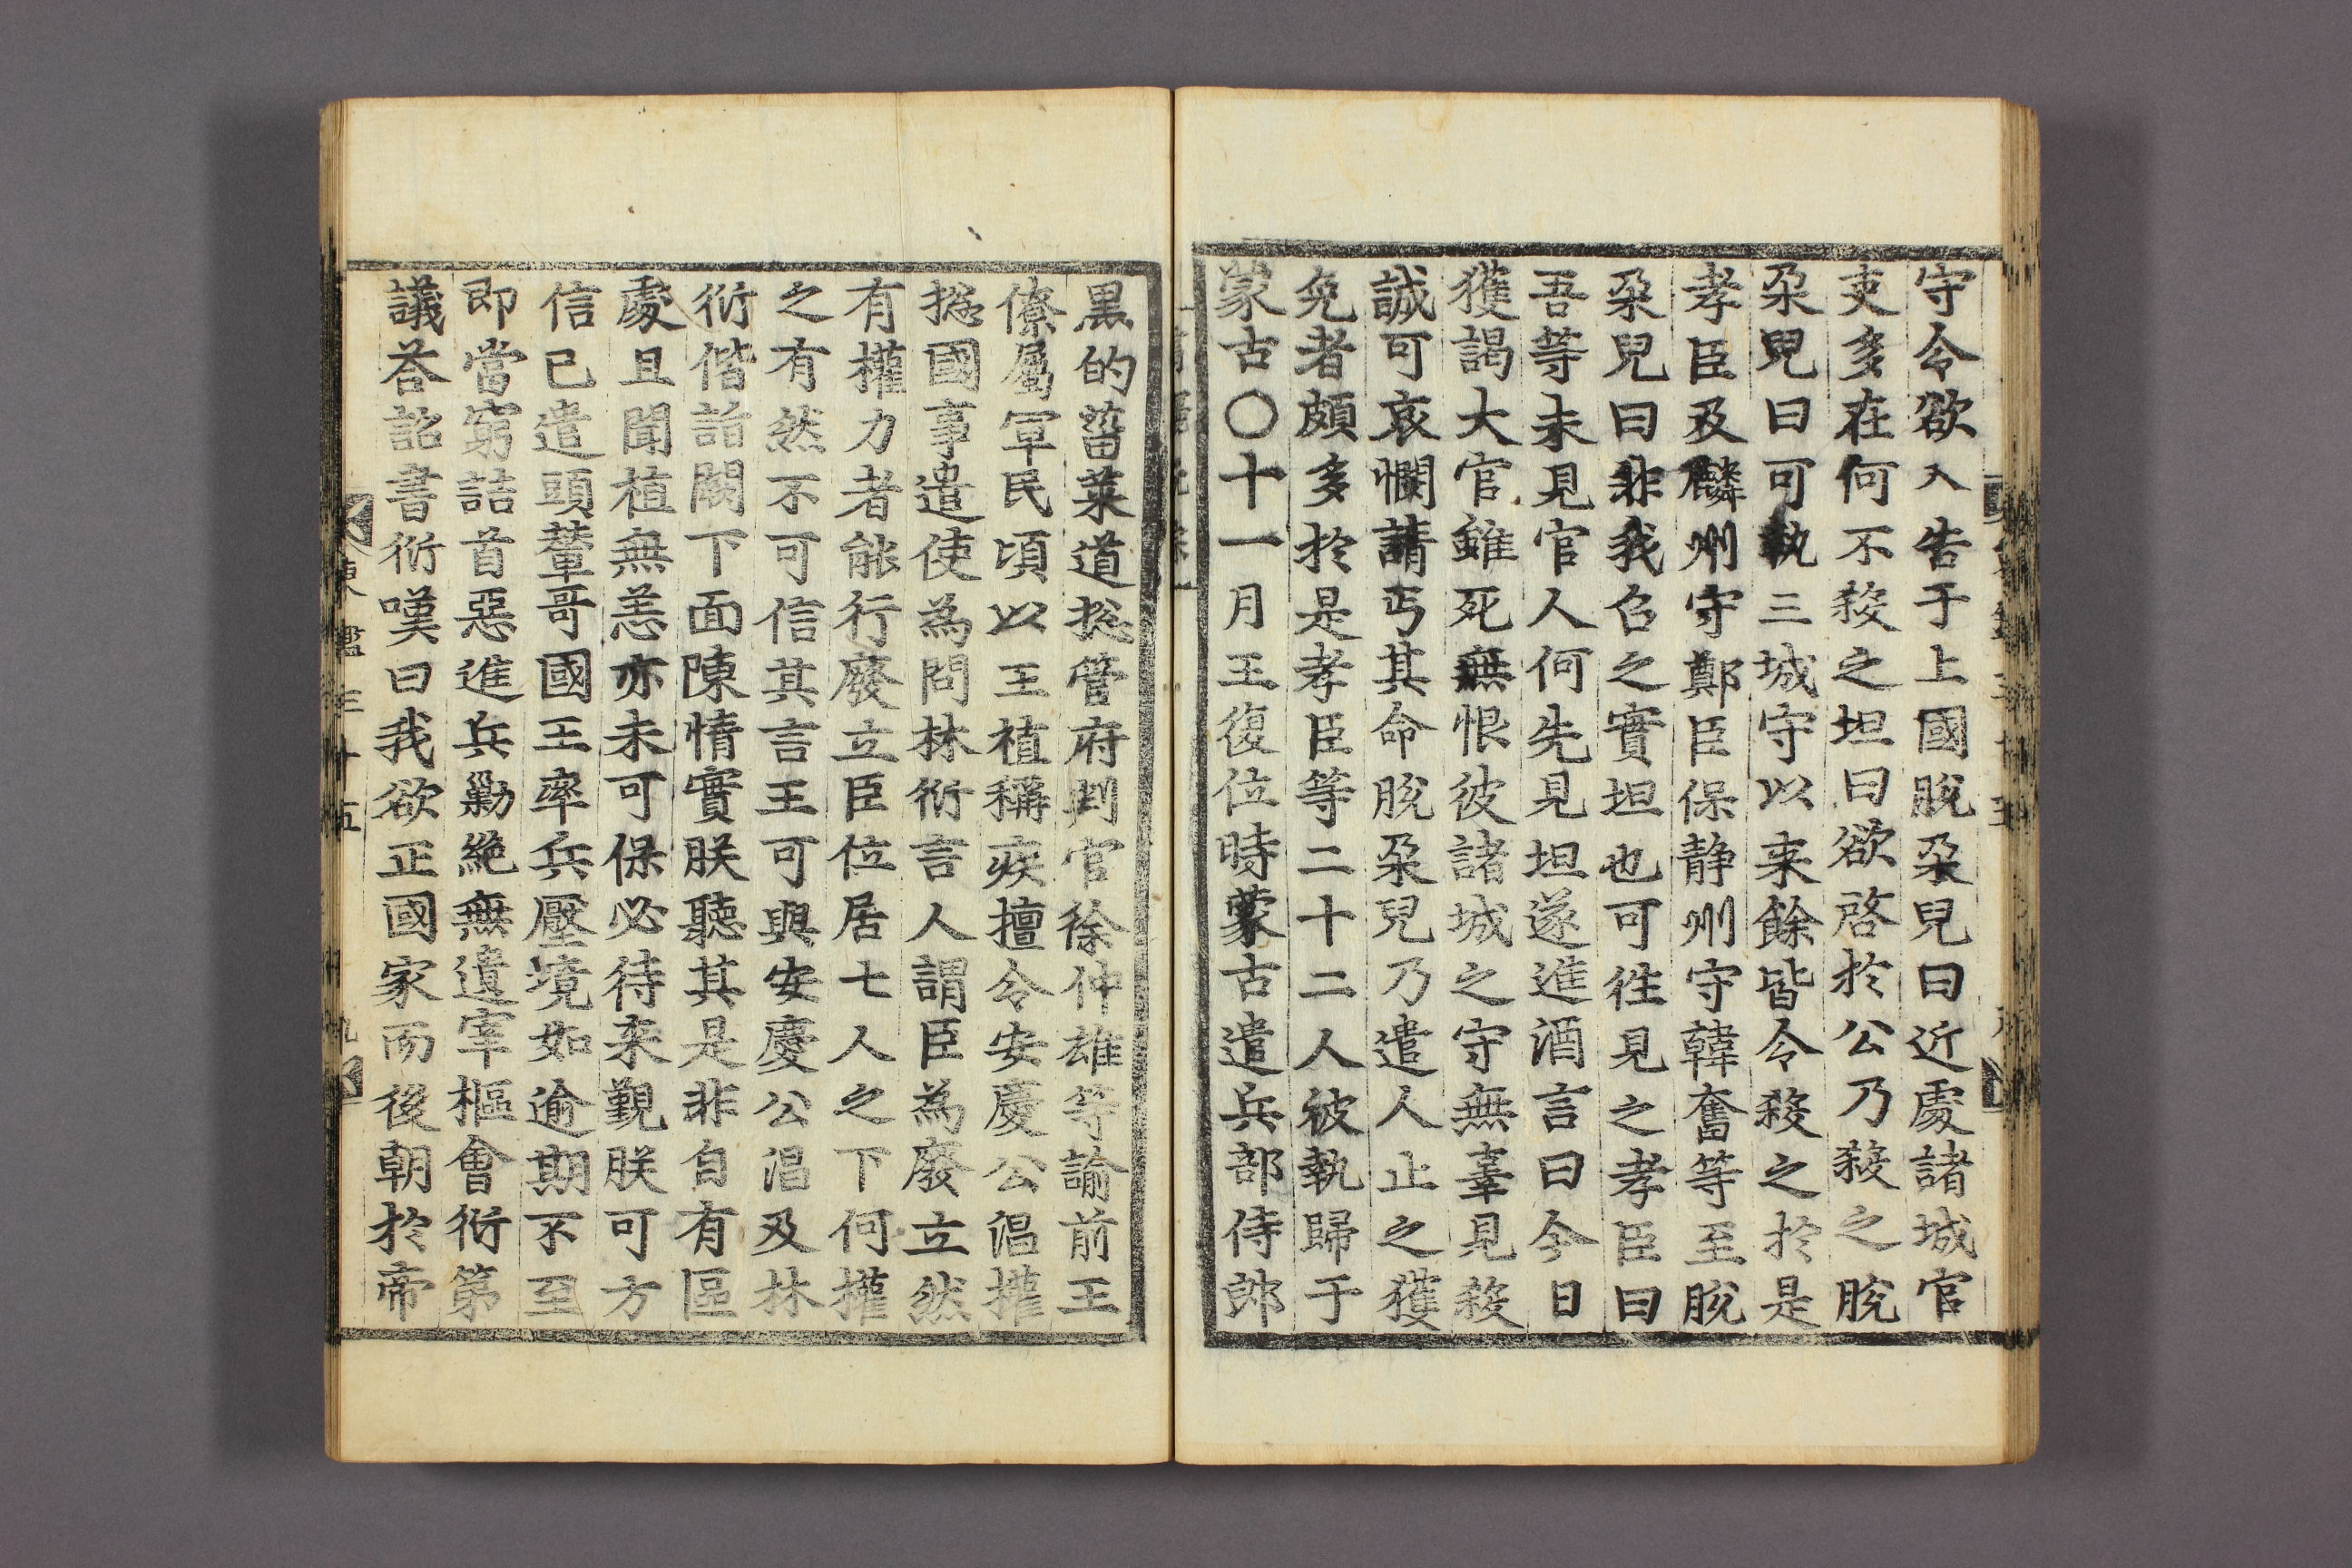 守令欲入告于上國脫朶兒曰近處諸城官
吏多在何不殺之坦曰欲啓於公乃殺之脫
朶兒曰可執三城守以来餘皆令殺之於是
孝臣及麟州守鄭臣保静州守韓奮等至脫
朶兒曰非我召之實坦也可徃見之孝臣曰
吾等未見官人何先見坦遂進酒言曰今日
獲謁大官雖死無恨彼諸城之守無辜見殺
誠可哀憫請丐其命脫朶兒乃遣人止之獲
免者頗多於是孝臣等二十二人被執歸于
蒙古〇十一月王復位時蒙古遣兵部侍郎
黒的菑萊道捴管府判官徐仲雄等諭前王
僚属軍民頃以王禃稱疾擅令安慶公淐權
捴國事遣使為問林衍言人謂臣為廢立然
有權力者能行廢立臣位居七人之下何權
之有然不可信其言王可與安慶公淐及林
衍偕詣闕下面陳情實朕聽其是非自有區
處且聞植無恙亦未可保必待来覲朕可方
信已遣頭輦哥國王率兵壓境如逾期不至
即當窮詰首惡進兵勦絶無遺宰樞會衍第
議荅詔書衍嘆曰我欲正國家而後朝於帝
東鑑三十五